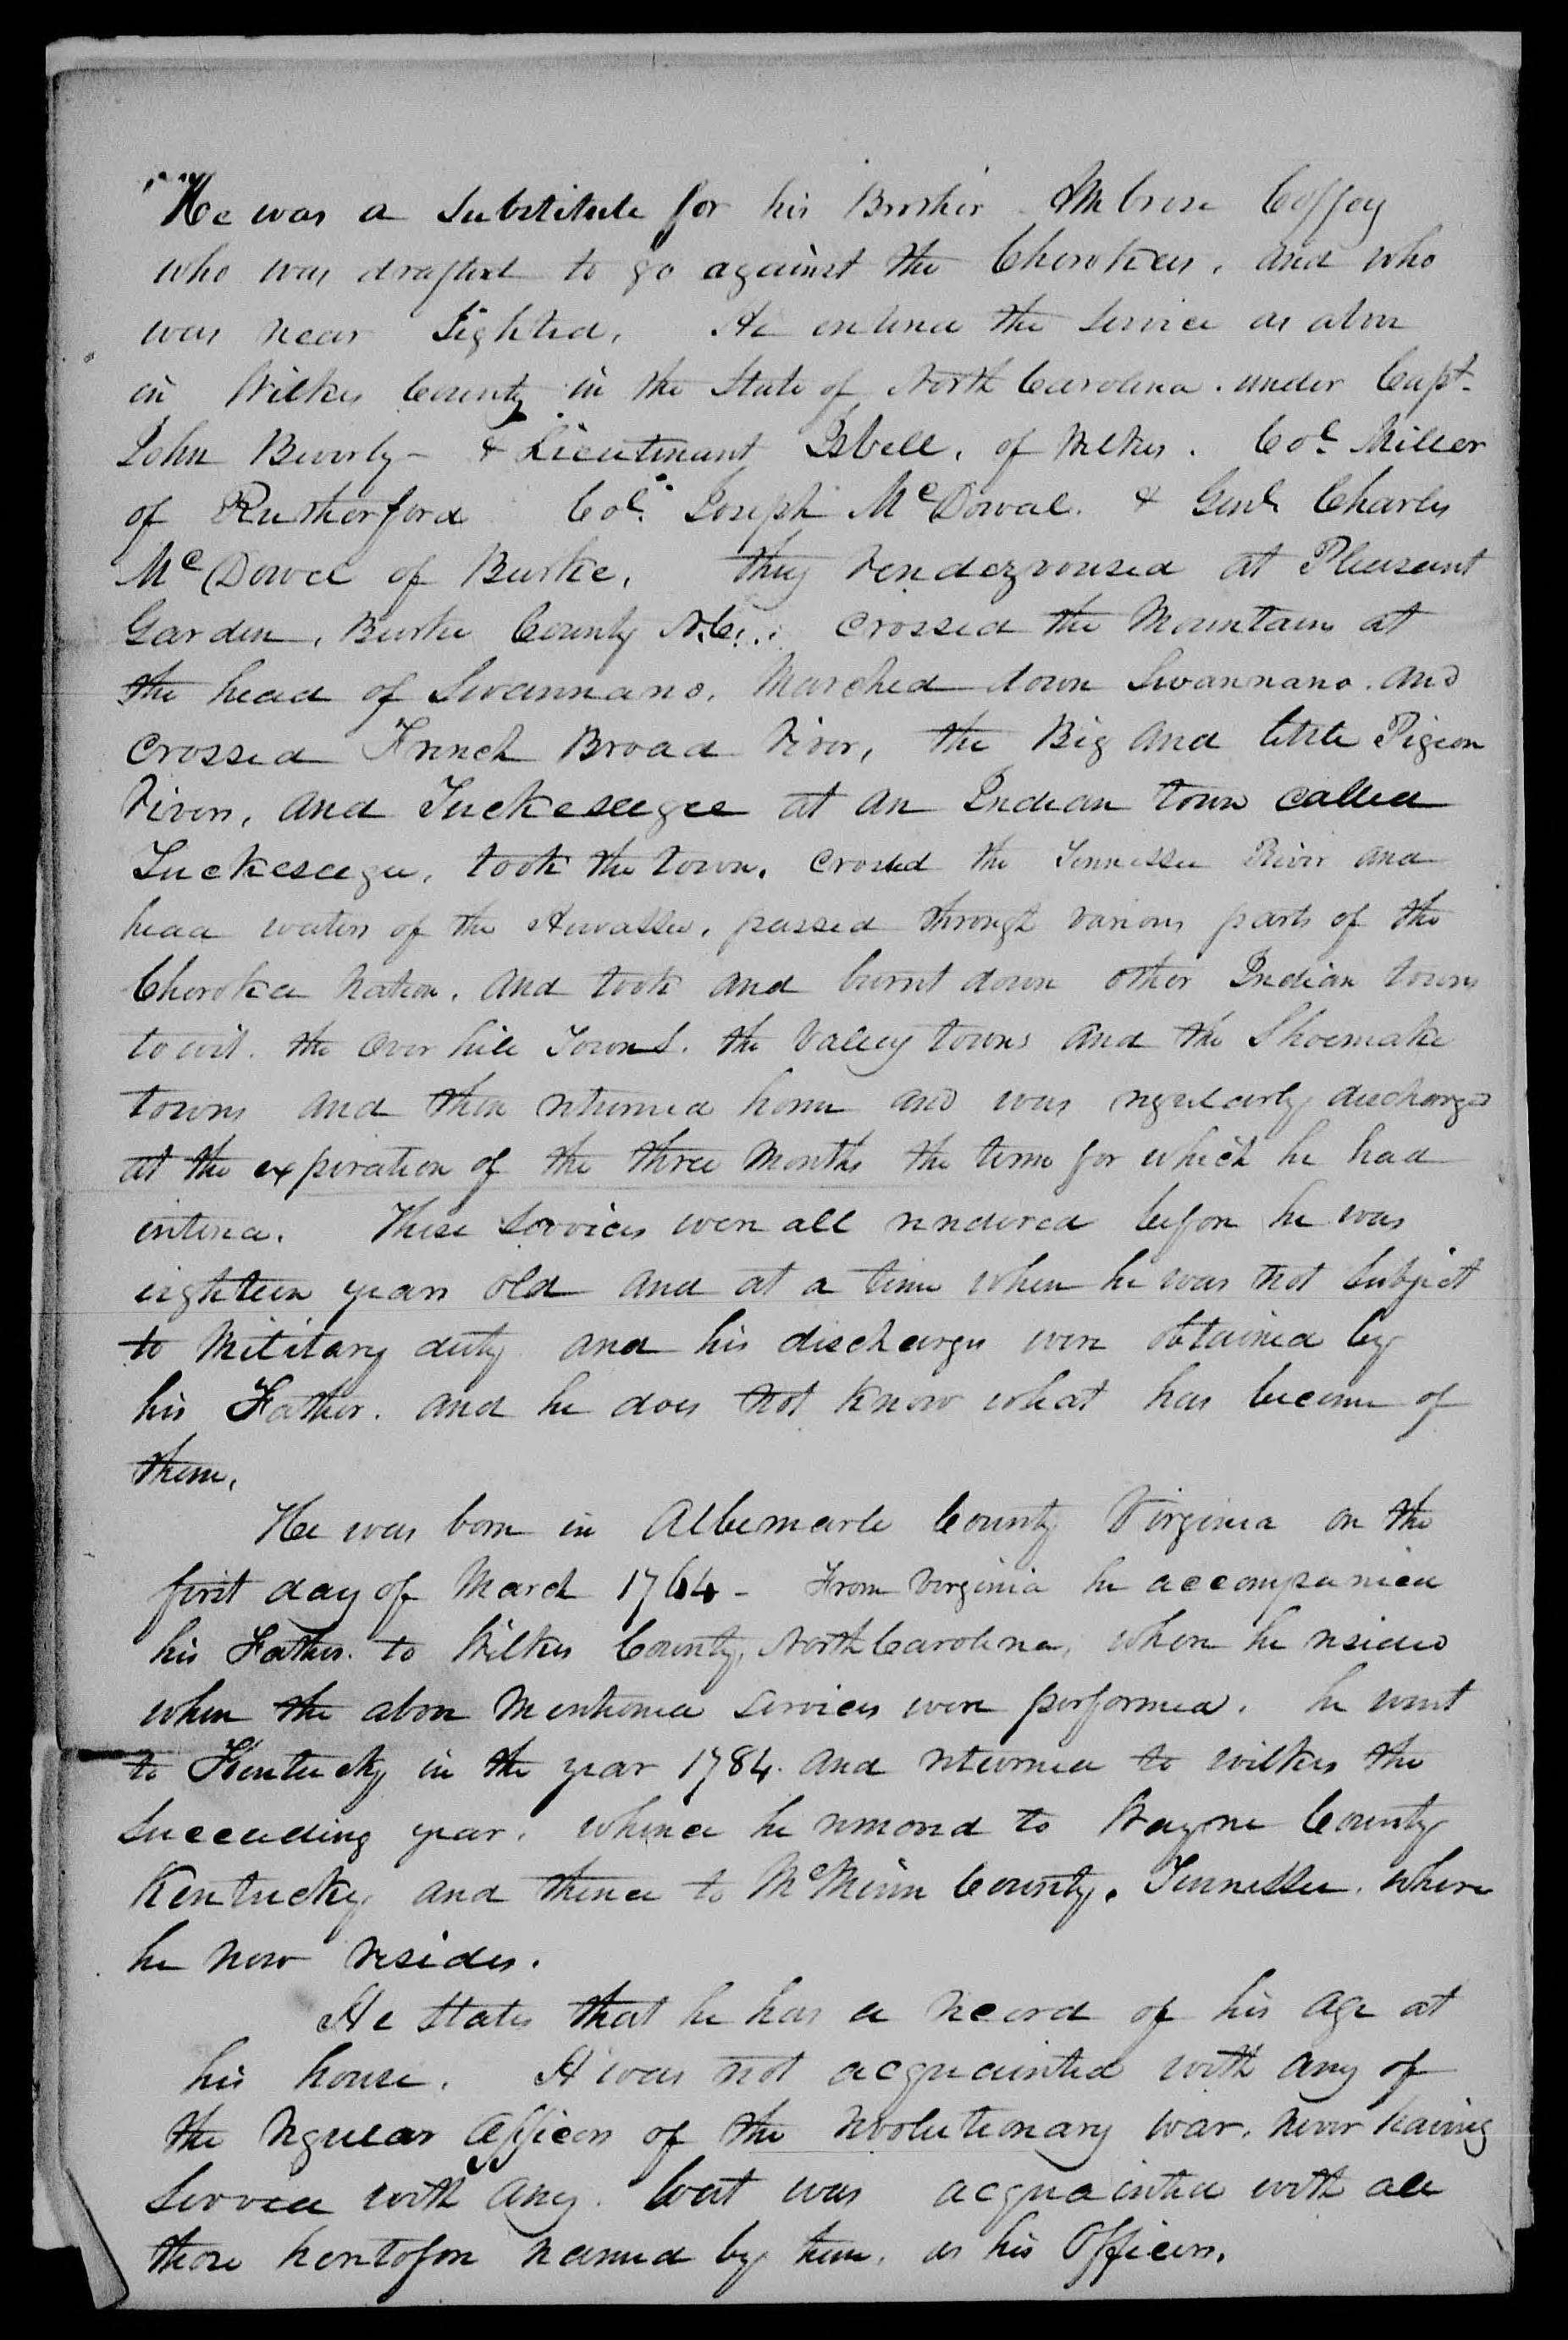 He was a substitute for his Brother Ambrose Coffey
who was drafted to go against the Cherokees, and who
was near sighted. He entered the service as above
in Wilkes County in the State of North Carolina. under Capt.
John Beverly - & Lieutenant Isbell, of Wilkes. Col. Miller
of Rutherford Col. Joseph McDowal. & Genl. Charles
McDowel of Burke. they rendezvoused at Pleasant
Garden, Burke County N.C.: crossed the Mountain at
the head of Swannano. Marched down Swannano. and
crossed French Broad River, the Big and little Pigeon
Rivers, and Tuckeseegee at an Indian town called
Tuckeseegee, took the town. crossed the Tennessee River and
head waters of the Hiwassee, passed through various parts of the
Cherokee Nation. and took and burnt down other Indian towns
to wit. the Over hill Towns. the Valley towns and the Shoemake
towns and then returned home and was regularly discharged
at the expiration of the three Months the term for which he had
entered. These services were all rendered before he was
eighteen years old and at a time when he was not subject
to Military duty and his discharges were obtained by
his Father. and he does not know what has become of
them.
He was born in Albemarle County Virginia on the
first day of March 1764 - From Virginia he accompanied
his Father. to Wilkes County, North Carolina, where he resided
when the above mentioned services were performed. he went
to Kentucky in the year 1784. and returned to wilkes the
succeeding year. whence he removed to Wayne County
Kentucky, and thence to McMinn County. Tennessee. where
he now resides.
He states that he has a record of his age at
his house. He was not acquainted with any of
the regular officers of the revolutionary war. never having
served with any. but was acquainted with all
those heretofore named by him. as his Officers.